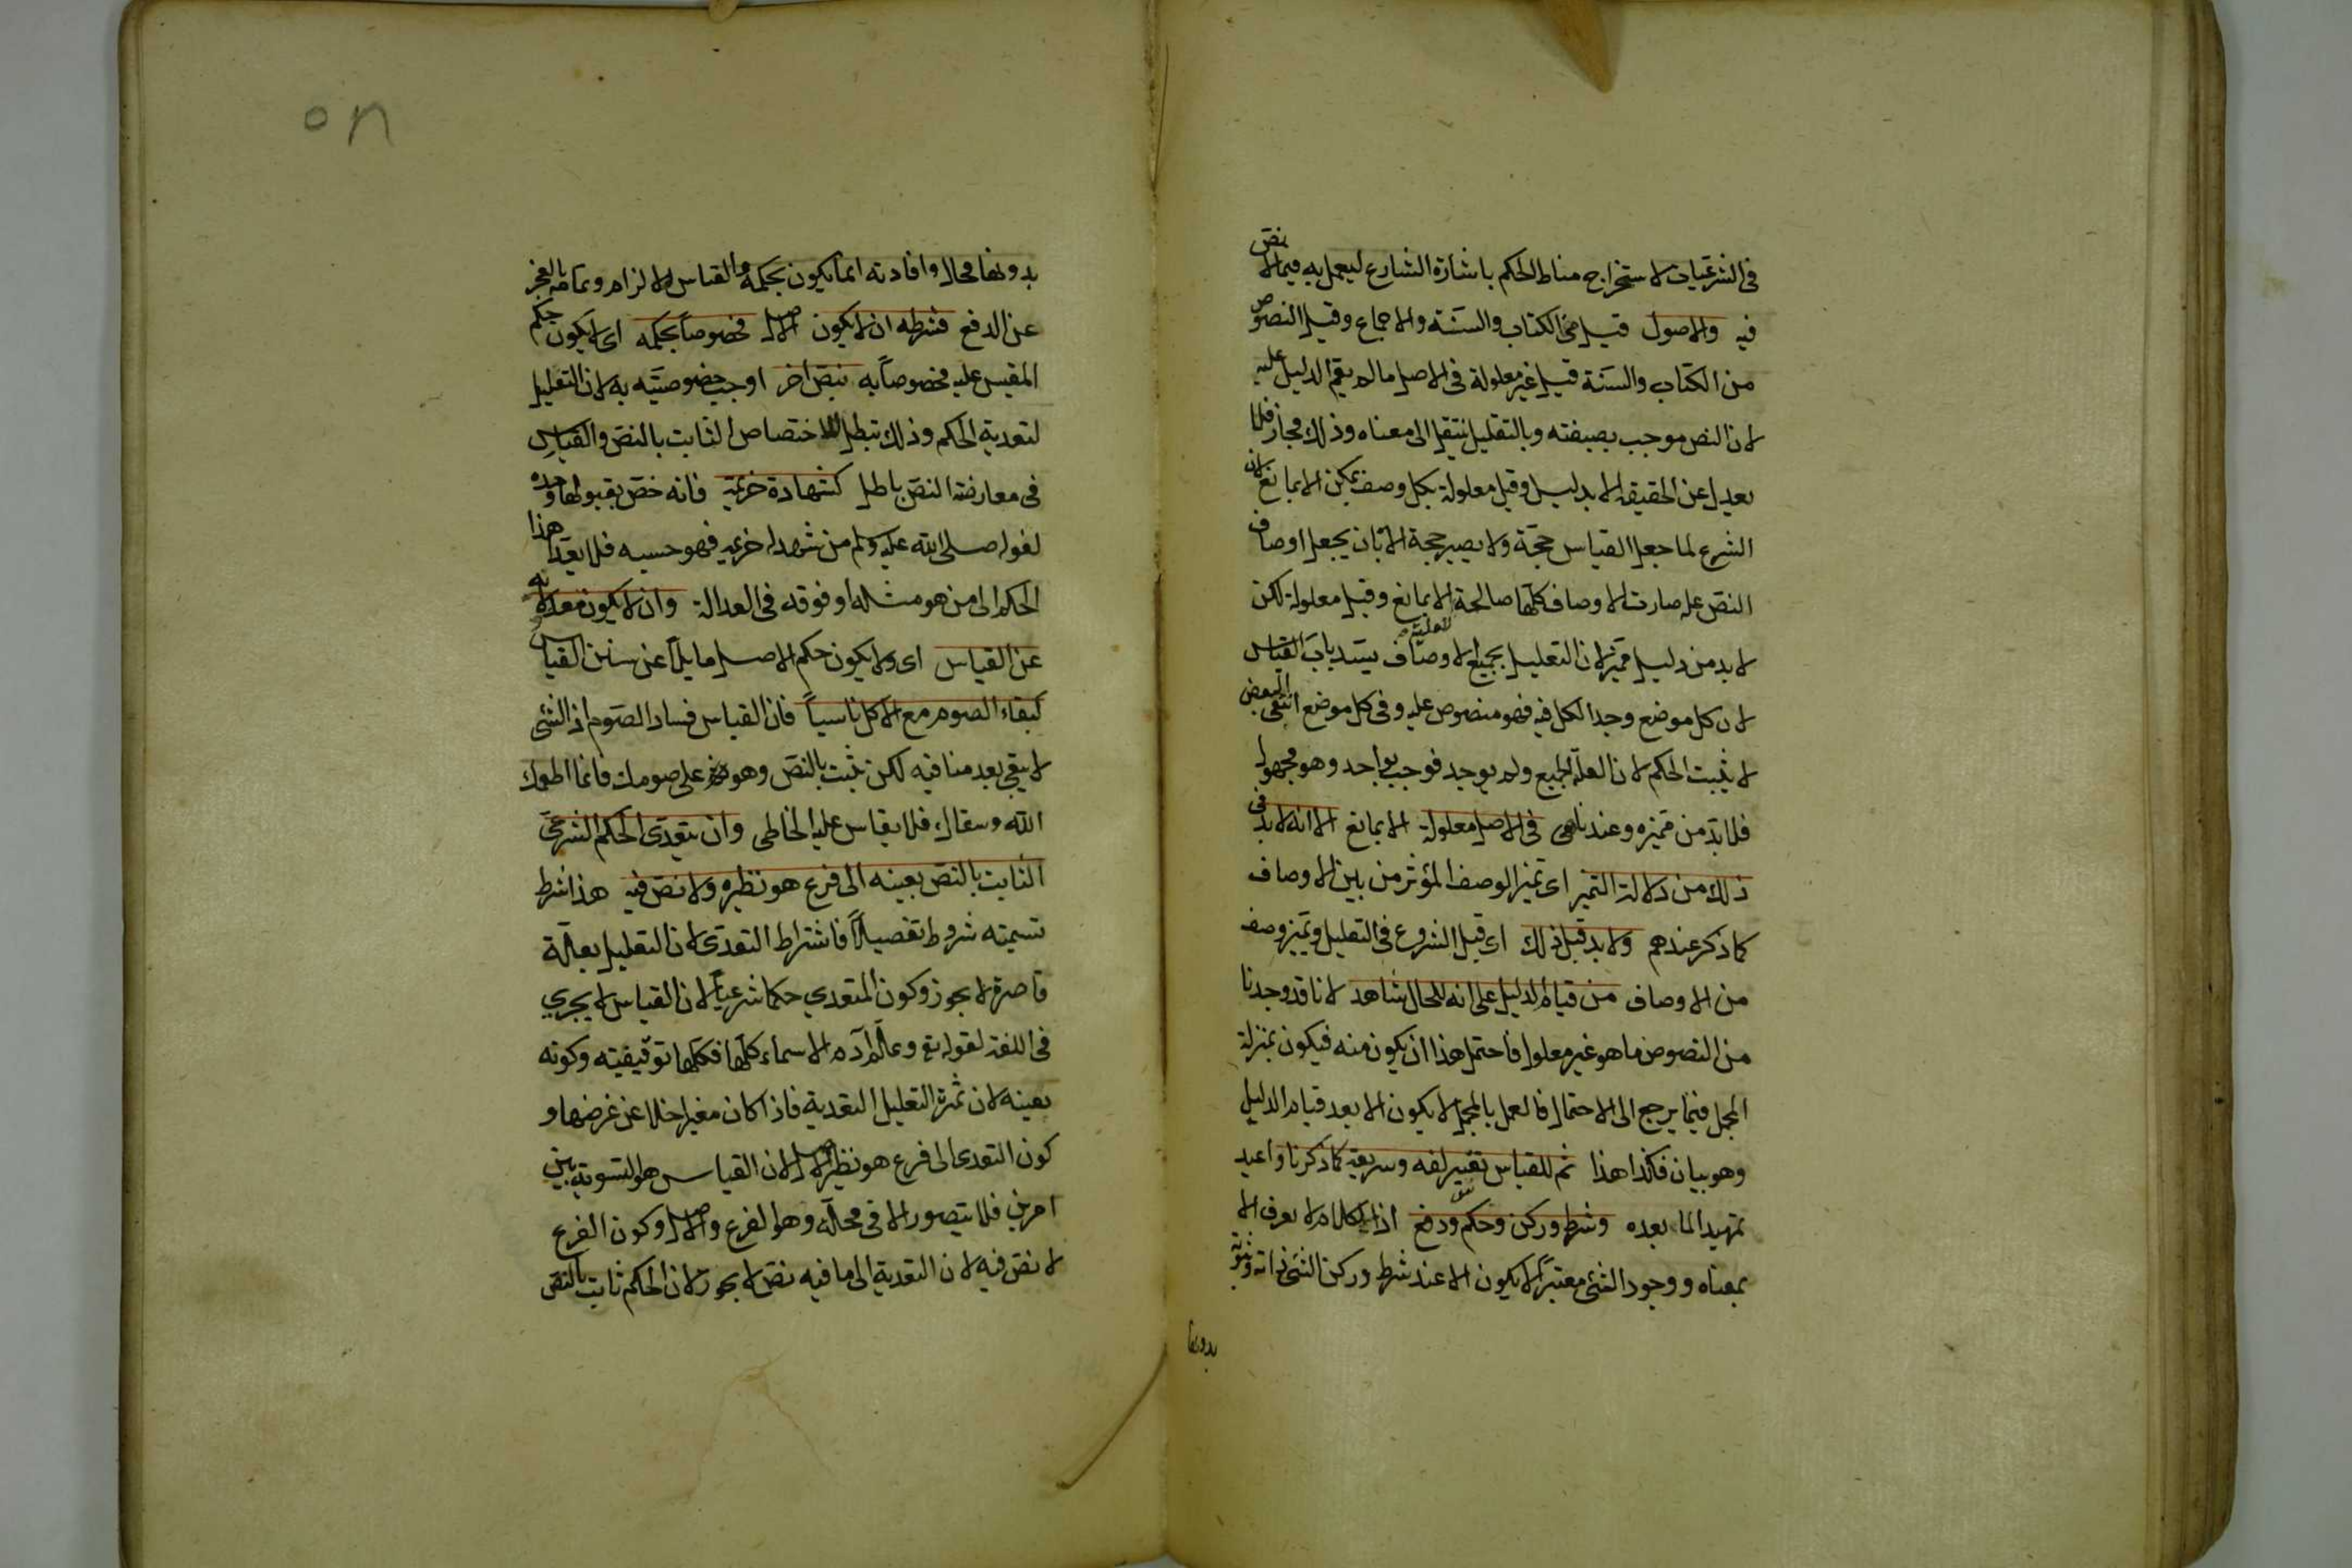 فى الشرعيات لاستخراج مناط الحكم باشارة الشارع ليعمل به فيما لا نص
فيه والاصول قيل هى الكتاب والسنة والاجماع وقيل النصوص
من الكتاب والسنة قيل غير معلولة فى الاصل ما لم يقم الدليل عليه
لان النص موجب بصيغته وبالتعليل ينتقل الى معناه وذلك مجاز فلا
يعدل عن الحقيقة الا بدليل وقيل معلولة بكل وصف يمكن الا بمانع لان
الشرع لما جعل القياس حجة ولا يصير حجة الا بان يجعل اوصاف
النص علة صارت الاوصاف كلها صالحة الا بمانع وقيل معلولة لكن
لا بد من دليل مميز لان التعليل بجميع الاوصاف يسد باب القياس
لان كل موضع وجد الكل فيه فهو منصوص عليه وفى كل موضع انتفى البعض
لا يثبت الحكم لان العلة الجميع ولم يوجد فوجب بواحد وهو مجهول
فلا بد من مميزه وعندنا هى فى الاصل معلولة الا بمانع الا انه لا بد فى
ذلك من دلالة التميز اى تميز الوصف المؤثر من بين الاوصاف
كما ذكر عندهم ولا بد قبل ذلك اى قبل الشروع فى التعليل وتميز وصف
من الاوصاف من قيام الدليل على انه للحال شاهد لانا قد وجدنا
من النصوص ما هو غير معلول فاحتمل هذا ان يكون منه فيكون بمنزلة
المجمل فيما يرجع الى الاحتمال فالعمل بالمجمل لا يكون الا بعد قيام الدليل
وهو بيان فكذا هذا ثم للقياس تفسير لغه وشريعة كما ذكرنا واعيد
تمهيدا لما بعده وشرط وركن وحكم ودفع اذ الكلام لا يعرف الا
بمعناه ووجود الشئ معتبرا لا يكون الا عند شرط وركن الشئ ذاته وثبوته
بدونها
بدونها محال وافادته انما يكون بحكمه والقياس للالزام وتمامه بالعجز
عن الدفع فشرطه ان لا يكون الاصل مخصوصا بحكمه اى لا يكون حكم
المقيس عليه مخصوصا به بنص اخر اوجب خصوصيته به لان التعليل
لتعدية الحكم وذلك تبطل الاختصاص الثابت بالنص والقياس
فى معارضة النص باطل كشهادة خزيمة فانه خص بقبولها وحده
لقوله صلى الله عليه وسلم من شهد له خزيمه فهو حسبه فلا يعدا هذا
الحكم الى من هو مثله او فوقه فى العدالة وان لا يكون معدولا به
عن القياس اى ولا يكون حكم الاصل مايلا عن سنن القياس
كبقاء الصوم مع الاكل ناسيا فان القياس فساد الصوم اذ الشئ
لا يبقى بعد منافيه لكن يثبت بالنص وهو تم على صومك فانما اطعمك
الله وسقاك فلا يقاس عليه الخاطى وان يتعدى الحكم الشرعى
الثابت بالنص بعينه الى فرع هو نظيره ولا نص فيه هذا شرط
تسميته شروط تفصيلا فاشتراط التعدى لان التعليل بعلة
قاصرة لا يجوز وكون المتعدي حكما شرعيا لان القياس لا يجري
فى اللغة لقوله تع وعلم آدم الاسماء كلها فكلها توقيفيته وكونه
بعينه لان ثمرة التعليل التعدية فاذا كان مغيرا خلا عن غرضها و
كون التعدى الى فرع هو نظير الاصل لان القياس هو التسوية بين
امرين فلا يتصور الا فى محله وهو الفرع والاصل وكون الفرع
لا نص فيه لان التعدية الى ما فيه نص لا يجوز لان الحكم ثابت بالنص